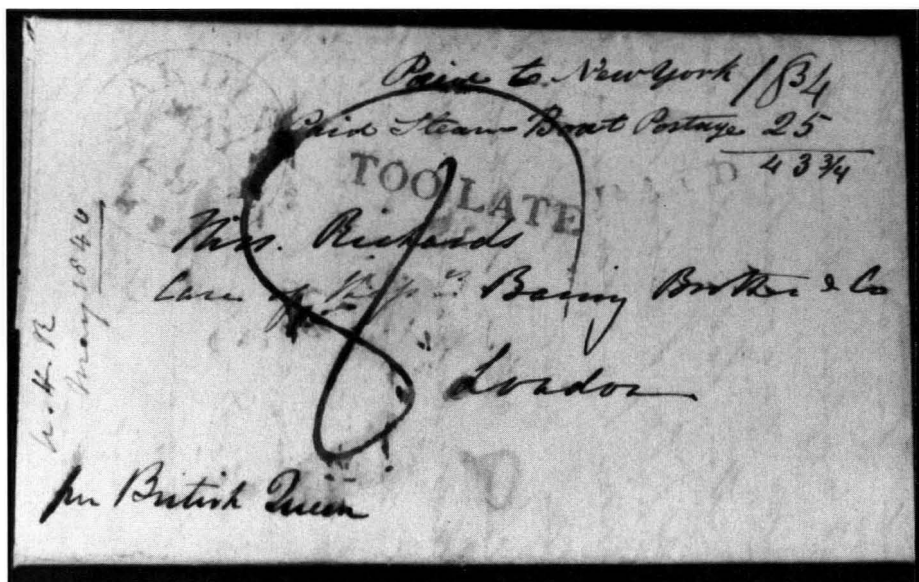 Paid to New York 18 3/4
Paid Steam Boat Postage 25
43 3/4
TOO LATE
PAID
Miss. Richards
Care of Baring Brother & Co
London
May 1840
8
per British Queen